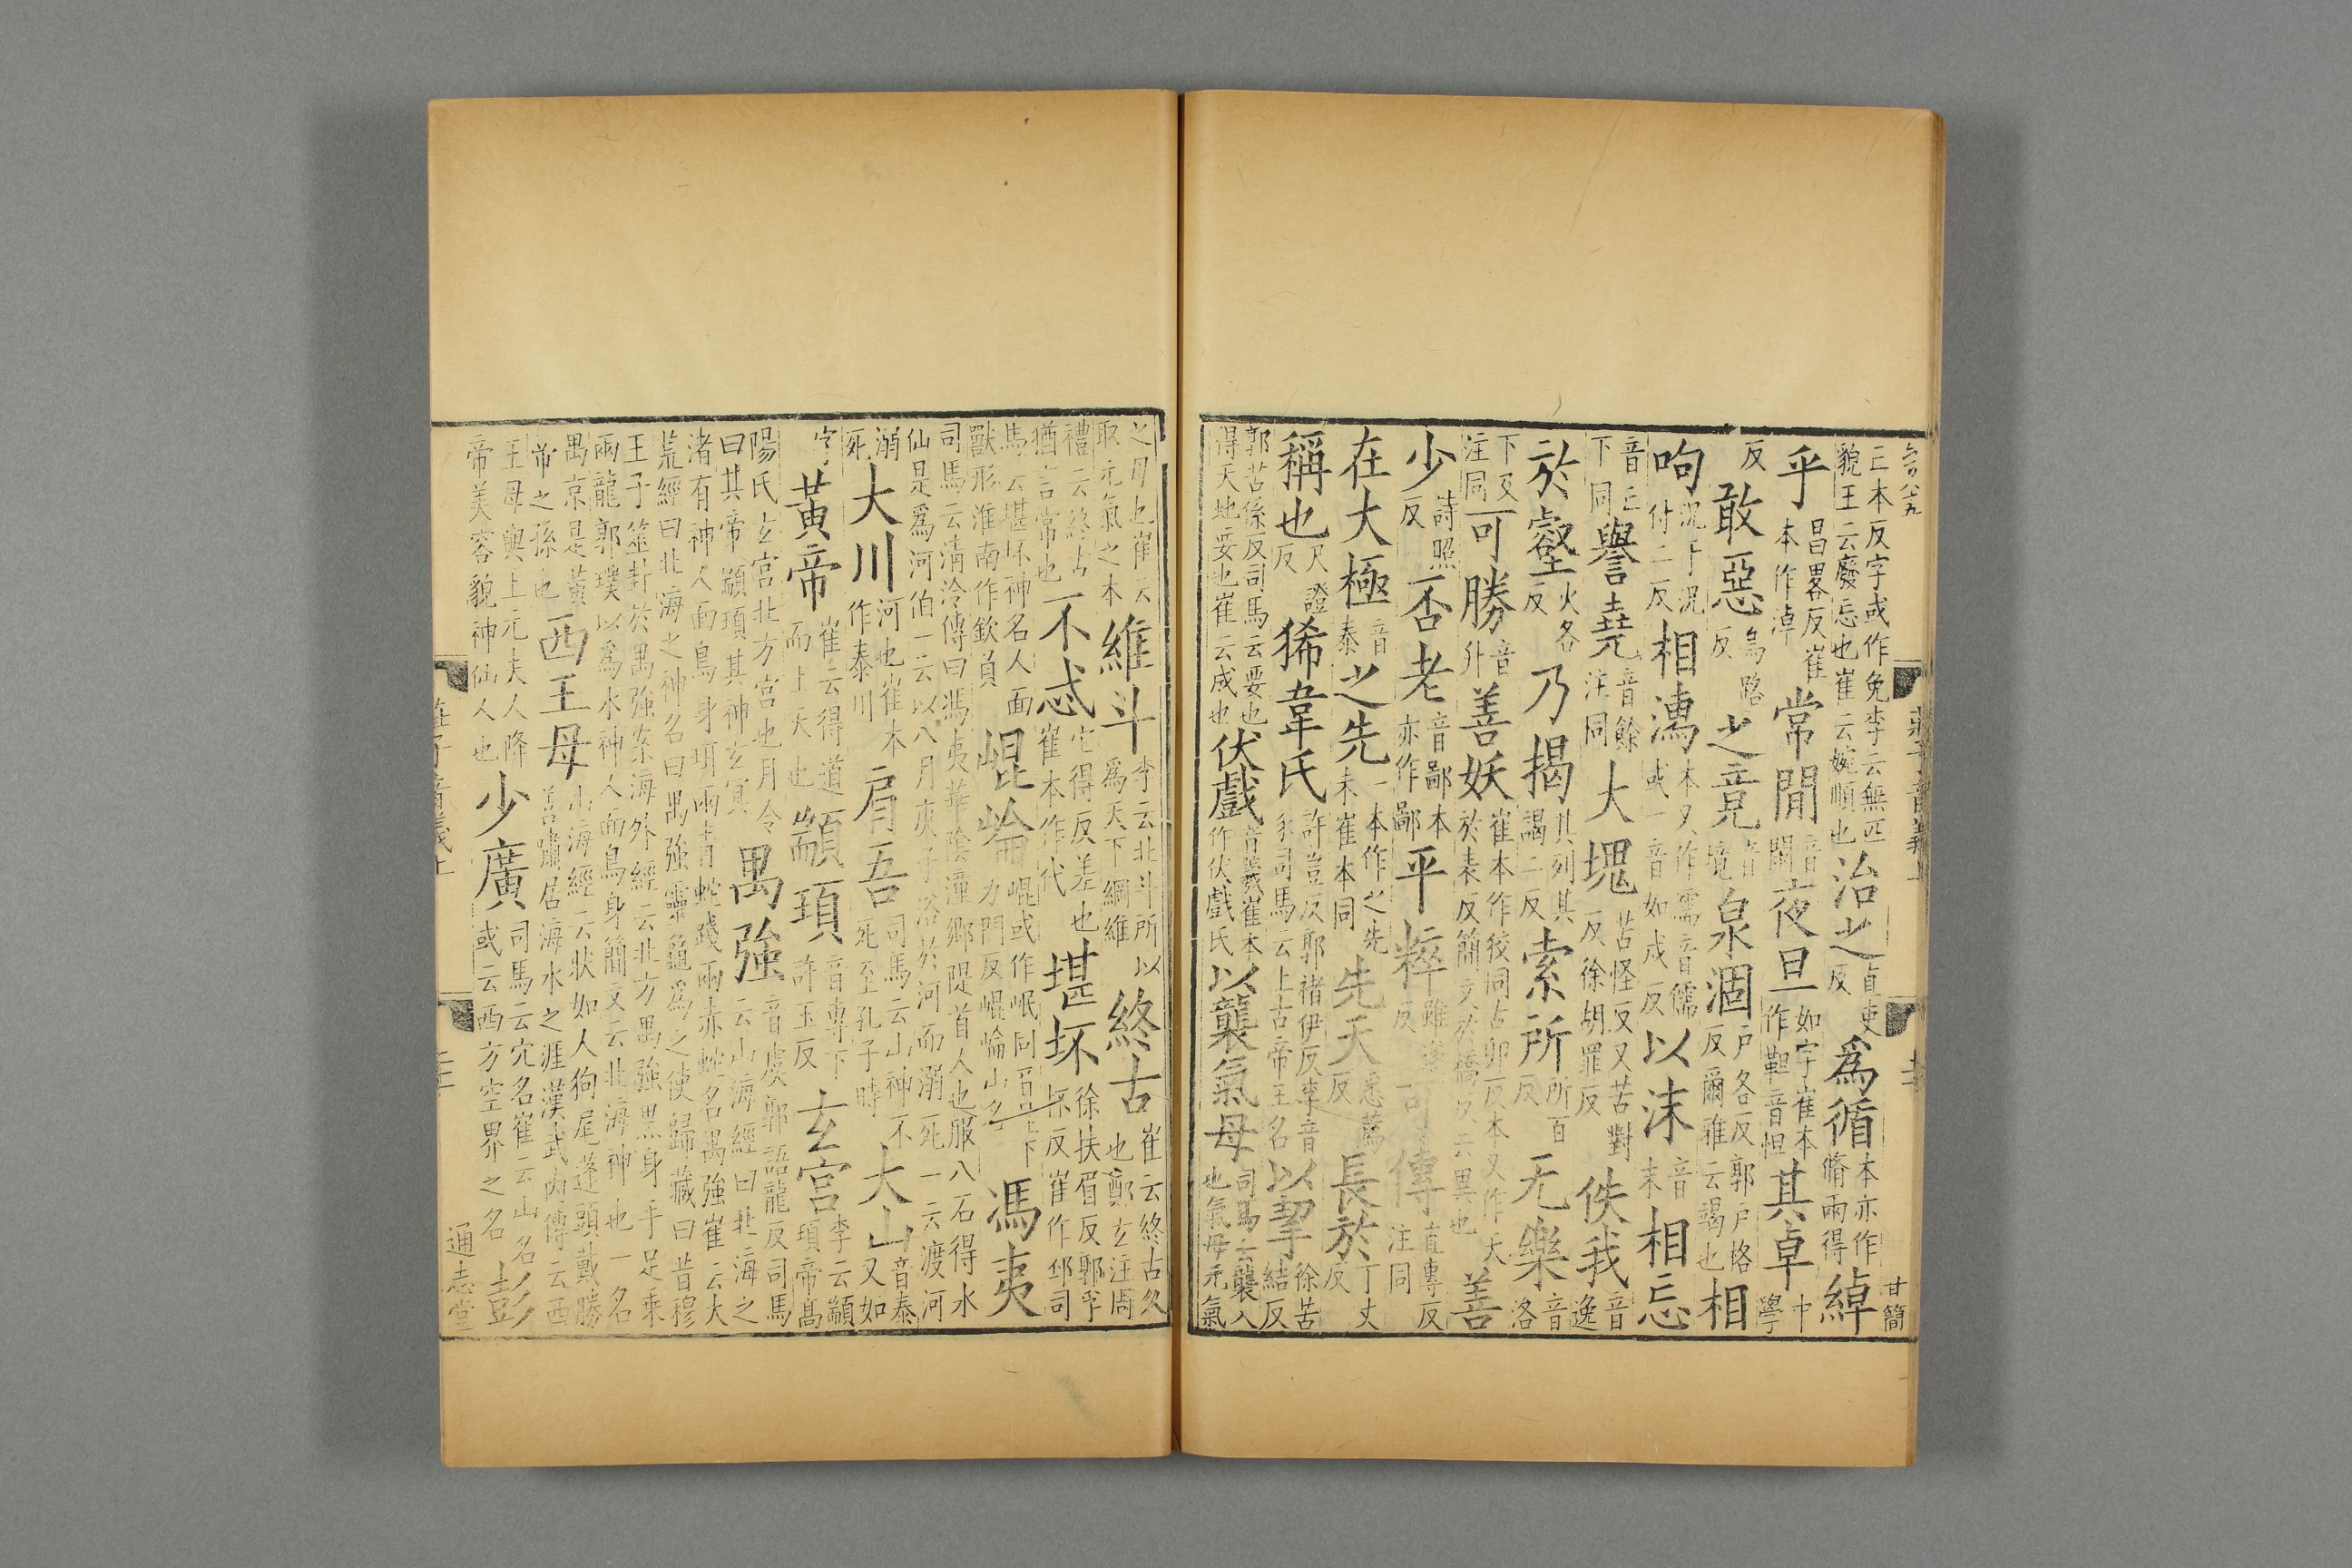 亡本反字或作免李云無匹貌王云廢忘也崔云婉順也治之直吏反為循本亦作脩兩得綽
乎昌畧反崔本作淖常閒音閑夜旦如字崔本作靼音怛其卓中學
反敢惡烏路反之竟音境泉涸戶各反郭戶格反爾雅云竭也相
呴况于况付二反相濡本又作濡音儒或一音如戍反以沫音末相忘
音亡下同譽堯音餘注同大塊苦怪反又苦對反徐胡罪反佚我音逸
於壑火各反乃揭其列其謁二反索所所百反无樂音洛
下及注同可勝音升善妖崔本作狡同古卯反本又作夭於表反簡文於橋反云異也善
少詩照反否老音鄙本亦作鄙平粹雖遂反可傳直專反注同
在大極音泰之先一本作之先未崔本同先天悉薦反長於丁丈反
稱也尺證反狶韋氏許豈反郭褚伊反李音豕司馬云上古帝王名以挈徐苦結反
郭苦係反司馬云要也得天地要也崔云成也伏戲音羲崔本作伏戲氏以襲氣母司馬云襲入也氣母元氣
甘簡
莊子音義上
之母也崔云取元氣之本維斗李云北斗所以為天下綱維終古崔云終古久也鄭玄注周
禮云終古猶言常也不忒它得反差也崔本作代堪坏徐扶眉反郭孚杯反崔作邳司
馬云堪坏神名人面獸形淮南作欽負崐崘崐或作岷同音昆下力門反崐崘山名馮夷
司馬云清泠傳曰馮夷華陰潼鄉隄首人也服八石得水仙是為河伯一云以八月庚子浴於河而溺死一云渡河
溺死大川河也崔本作泰川肩吾司馬云山神不死至孔子時大山音泰又如
字黃帝崔云得道而上天也顓頊音專下許玉反玄宫李云顓頊帝高
陽氏玄宫北方宫也月令曰其帝顓頊其神玄冥禺強音虞郭語龍反司馬云山海經曰北海之
渚有神人面鳥身珥兩青蛇踐兩赤蛇名禺強崔云大荒經曰北海之神名曰禺強靈龜為之使歸藏曰昔穆
王子筮卦於禺強案海外經云北方禺強黑身手足乘兩龍郭璞以為水神人面鳥身簡文云北海神也一名
禺京是黃帝之孫也西王母山海經云狀如人狗尾蓬頭戴勝善嘯居海水之涯漢武內傳云西
王母與上元夫人降帝美容貌神仙人也少廣司馬云穴名崔云山名或云西方空界之名彭
通志堂